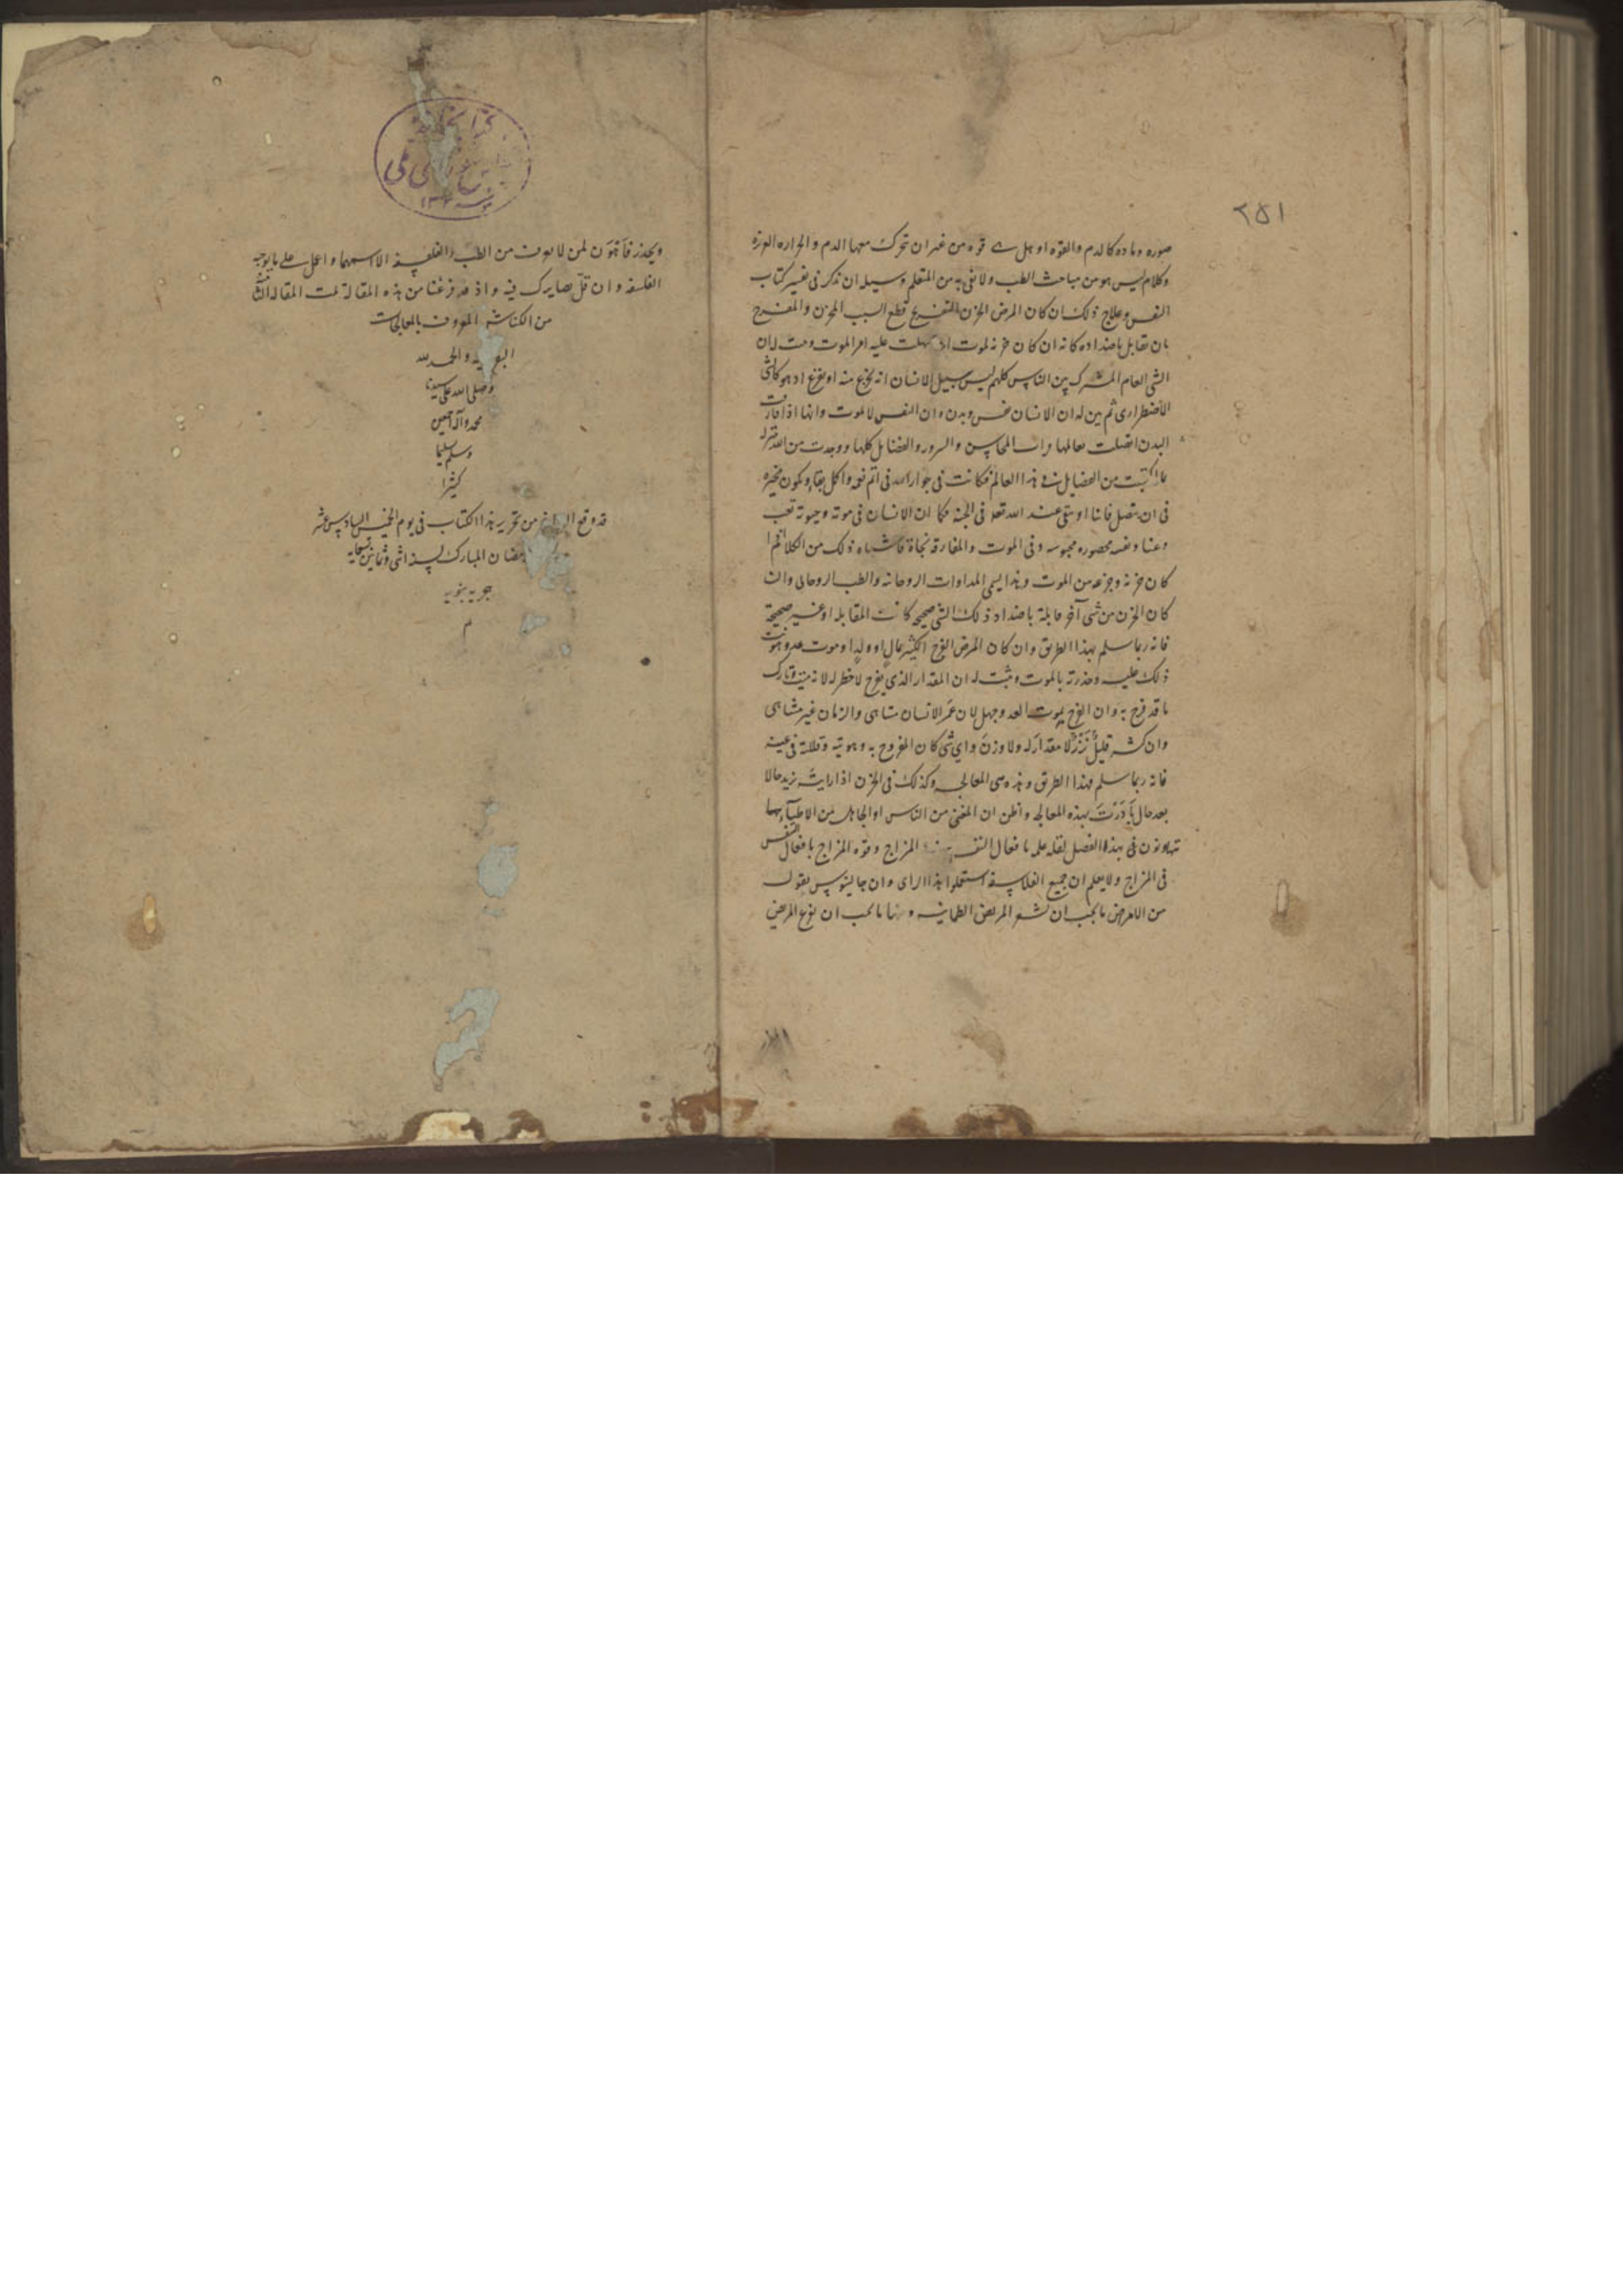 ٢٥١
صوره وماده كالدم والقوه او هل قوه من غير ان تحرك معها الدم والحراره الغريزه
وكلام ليس هو من مباحث الطب ولا نفى به من المتعلم وسبيله ان يذكر فى تفسير كتاب
النفس وعلاج ذلك ان كان المرض الحزن بالتفريح قطع السبب المحزن والمفرح
بان تقابل باضداده كانه ان كان حزنه لموت سهلت عليه امر الموت له ان
الشى العام المشترك بين الناس كلهم ليس سبيل الانسان انه يجزع منه او يفزع اذ هو كالشى
الاضطرارى ثم بين له ان الانسان نفس وبدن وان النفس لا تموت وانها اذا فارقت
البدن اتصلت بعالمها ورات المحاسن والسرور والفضايل كلها ووجدت من الله
ما اكتسبت من الفضايل فى هذا العالم فكانت فى جوار الله فى اتم نعمه واكمل بقاء
فى ان يتصل فانا او يبقى عند الله تعه فى الجنه فكما ان الانسان فى موته وحيوته تعب
وعنا ونفسه محصوره محبوسه وفى الموت والمفارقه نجاة فاشباه ذلك من الكلام
كان حزنه وجزعه من الموت وهذا يسمى المداوات الروحانيه والطب الروحانى وان
كان الحزن من شى آخر قابلته باضداد ذلك الشى صحيحه كانت المقابله او غير صحيحة
فانه ربما سلم بهذا الطريق وان كان المرض الفرح الكثير بمال او ولد او موت عدو هونت
ذلك عليه وحذرته بالموت وثبت له ان المقدار الذى يفرح لا خطر له لانه ميت وتارك
ما قد فرح به وان الفرح بموت العدو جهل لان عمر الانسان متناهى والزمان غير متناهى
وان كثر قليل نزر لا مقدار له ولا وزن واى شى كان المفروح به وقللته فى عينه
فانه ربما سلم بهذا الطريق وهذه هى المعالجه وكذلك فى الحزن اذا رايت يزيد حالا
بعد حال بادرت بهذه المعالجه واظن ان من الناس او الجاهل من الاطباء
يتهاونون فى هذا الفصل لقله علمه بافعال النفس المزاج وقوه المزاج بافعال النفس
فى المزاج ولا يعلم ان جميع الفلاسفه استعملوا هذا الراى وان جالينوس يقول
من الامراض ما يجب ان المريض الطمانينه ومنها ما يجب ان يفزع المريض
ويحذر فاهون لمن لا يعرف من الطب والفلسفه الا اسمهما واعمل على ما يوجبه
الفلسفه وان قل فيه واذ قد فرغنا من هذه المقاله تمت المقاله
من الكناش المعروف بالمعالجات
والحمد لله
وصلى الله على سيدنا
محمد وآله اجمعين
وسلم تسليما
كثيرا
قد وقع الفراغ من تحرير هذا الكتاب فى يوم الخميس السادس عشر
رمضان المبارك لسنه اثنى وثمانين وتسعمايه
هجريه نبويه
م